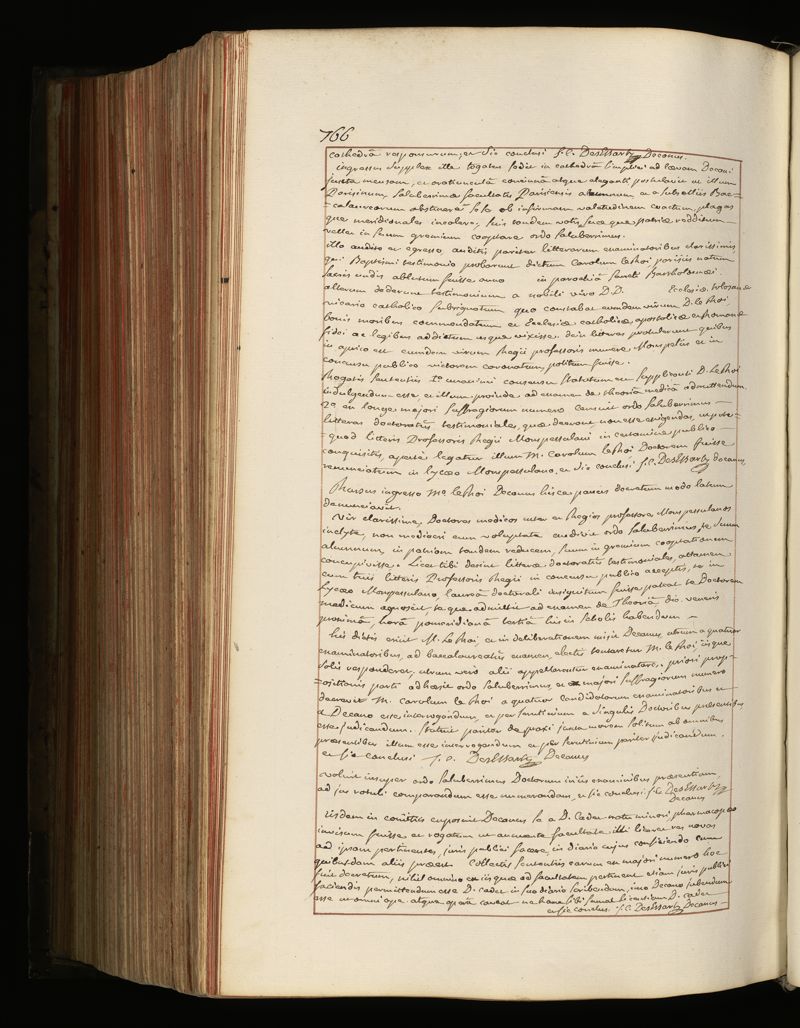 766
cathedrâ responsurum, et sic conclusi J. C. DesEssartz Decanus.
ingressus supplex ille togatus sedit in cathedrâ simplici ad laevam Decani
juxta mensam, et oratiunculâ concinnâ atque eleganti postulavit ut illum
Parisinum, saluberrimae facultatis Parisiensis alumnum, et a subselliis Bac-
-calaureorum abstinere se ob infirmam valetudinem coactum, plagas
que meridionales incolere, suis tandem votis suae que patriae redditum
vellet in suum gremium cooptare ordo saluberrimus.
illo audito et egresso, auditis pariter litterarum examinatoribus clarissimis
qui Baptismi testimonio probarunt dictum Carolum le Roi parisiis natum
sacris undis ablutum fuisse anno in paroeciâ sancti Bartholomaei.
alterum dederunt testimonium a nobili viro D. D. Ecclesiae tolosanae
vicario catholico subsignatum quo constabat eundem virum D. le Roi,
bonis moribus commendatum et Ecclesiae catholicae, apostolicae et Romanae
fidei ac legibus addictum usque vixisse. dein litteras protulerunt quibus
in aprico est eumdem virum Regii professoris munere, Monspelii et in
concursu publico victorem coronatum, potitum fuisse.
Rogatis sententiis 1o unanimi consensu statutum est supplicanti D. Le Roi
indulgendum esse, et illum, proinde ad examen de theoriâ medicâ admittendum.
2o et longe majori suffragiorum numero censuit ordo saluberrimus
litteras doctoratûs testimoniales, quae deerant non esse exigendas, ut pote
-quod litteris Professoris Regii Monspessulani in certamine publico
conquisitis, aperte legatur illum M. Carolum le Roi Doctorem fuisse
renunciatum in lycaeo Monspessulano, et sic conclusi J. C. DesEssartz decanus
Rursus ingresso Mo. le Roi Decanus hisce paucis decretum modo latum
denunciavit.
Vir clarissime, Doctores medicos inter et Regios professores Monspessulanos
inclyte, non mediocri cum voluptate audivit ordo saluberrimus, te suum
alumnum, in patriam tandem reducem, suum in gremium cooptationem
concupivisse. Licet tibi desint litterae doctoratûs testimoniales, attamen
cum tuis litteris Professoris Regii in concursu publico acceptis, te in
Lycaeo Monspessulano, laureâ doctorali insignitum fuisse pateat te Doctorem
medicum agnoscit te que admittit ad examen de Theoriâ die veneris
proximâ, horâ pomeridianâ tertiâ his in scholis habendum.
his dictis exiit M. Le Roi et in deliberationem misit Decanus, utrum a quatuor
examinatoribus, ad baccalaureatus examen, electis tentaretur M. le Roi, iisque
solis responderet, utrum vero alii appellarentur examinatores. priori prop-
-ositionis parti adhaesit ordo saluberrimus, et majori suffragiorum numero
decrevit M. Carolum le Roi a quatuor candidatorum examinatoribus et
a Decano esse interrogandum, et per scrutinium a singulis Doctoribus praesentibus
esse judicandum. statuit pariter de praxi juxta morem solitum ab omnibus
praesentibus illum esse interrogandum et per scrutinium pariter judicandum.
et sic conclusi J. C. DesEssartz Decanus
voluit insuper ordo saluberrimus Doctorum in iis examinibus praesentium,
ad jus rotuli comparandum esse numerandam, et sic conclusi J. C. DesEssartz
Decanus
iisdem in comitiis exposuit Decanus se a D. Cadet natu minori, pharmacopaeo
invisum fuisse et rogatum ut annuente facultate illi liceret res novas
ad ipsam pertinentes, juris publici facere, in diario cujus conficiendo cum
quibusdam aliis praeest. Collectis sententiis earum ex majori numero hoc
fuit decretum, nihil omnino ex iis quae ad facultatem pertinent etiam juris publici
faciendis permittendum esse D. cadet in suo diario scribendum, imo Decano jubendum
esse ut omni ope atque operâ caveat ne hanc sibi sumat licentiam D. cadet
et sic conclusi J. C. DesEssartz Decanus